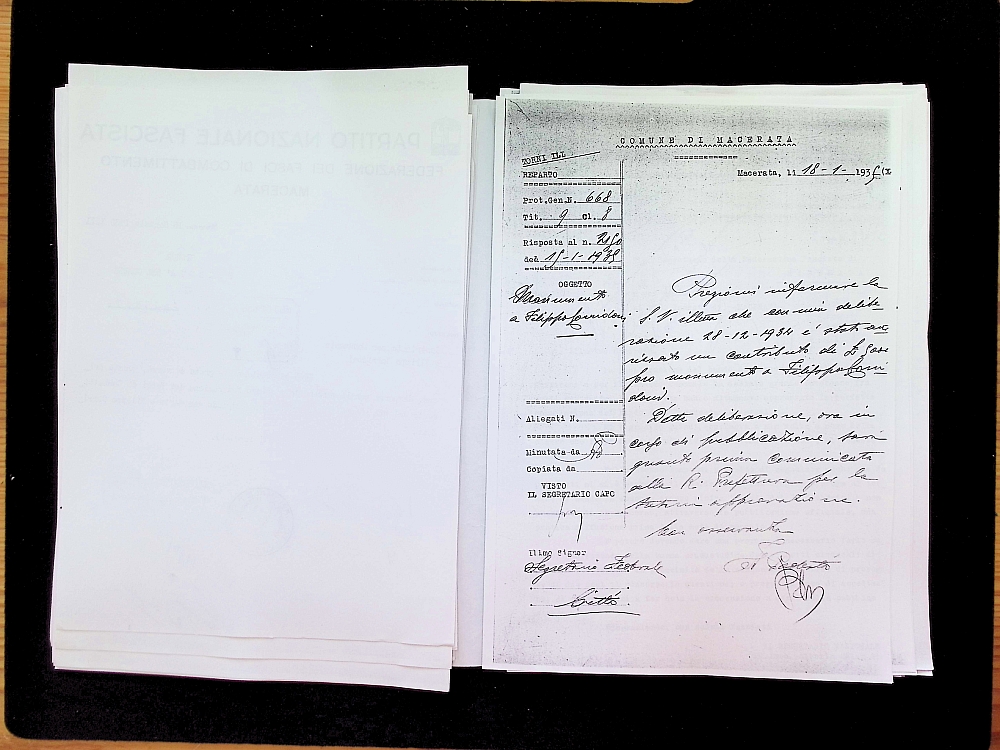 PARTITO NAZIONALE FASCISTA
FEDERAZIONE DEI FASCI DI COMBATTIMENTO
MACERATA
COMUNE DI MACERATA
Macerata, li 18-1-1935 (X
REPARTO
Prot.Gen.N. 668
Tit. 9 Cl. 8
Risposta al n.
del 15-1-1935
OGGETTO
Monumento
a Filippo Corridoni
Pregiomi informare la
S. V. illma che con mia delibe-
razione 28-12-1934 è stato au
rizzato un contributo di £
pro monumento a Filippo Corri
doni.
Detta deliberazione, ora in
corso di pubblicazione, sarà
quanto prima comunicata
alla R. Prefettura per la
approvazione.
Con osservanza
Il Podestà
Allegati N.
Minutata da
Copiata da
VISTO
IL SEGRETARIO CAPO
Illmo Signor
Segretario Federale
Città